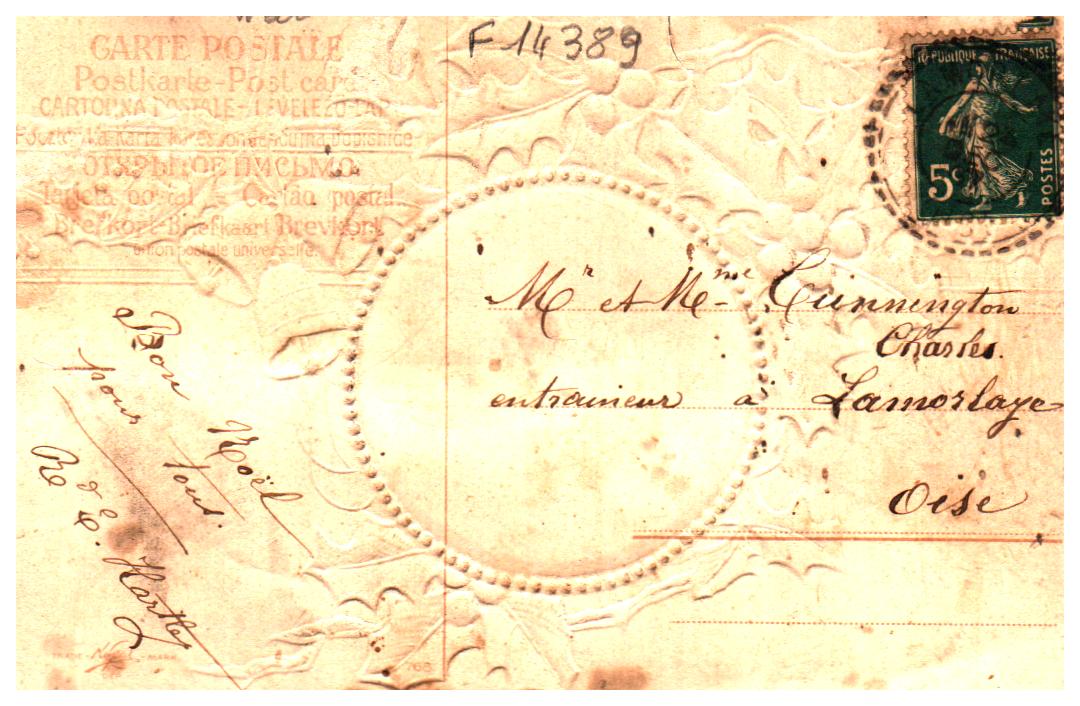 F 14389
CARTE POSTALE
Postkarte-Post card
CARTOLINA POSTALE-LEVELEZO-LAP
ОТКРЫТОЕ ПИСЬМО
Tarjeta postal - Cartão postal.
Brefkort-Briefkaart Brevkort
Union postale universelle.
RÉPUBLIQUE FRANÇAISE
5c
POSTES
Mr et Mme Cunnington
Charles.
entraineur a Lamorlaye
Oise
Bon Noël
pour tous.
R & E. Hartley
TRADE MARK
768